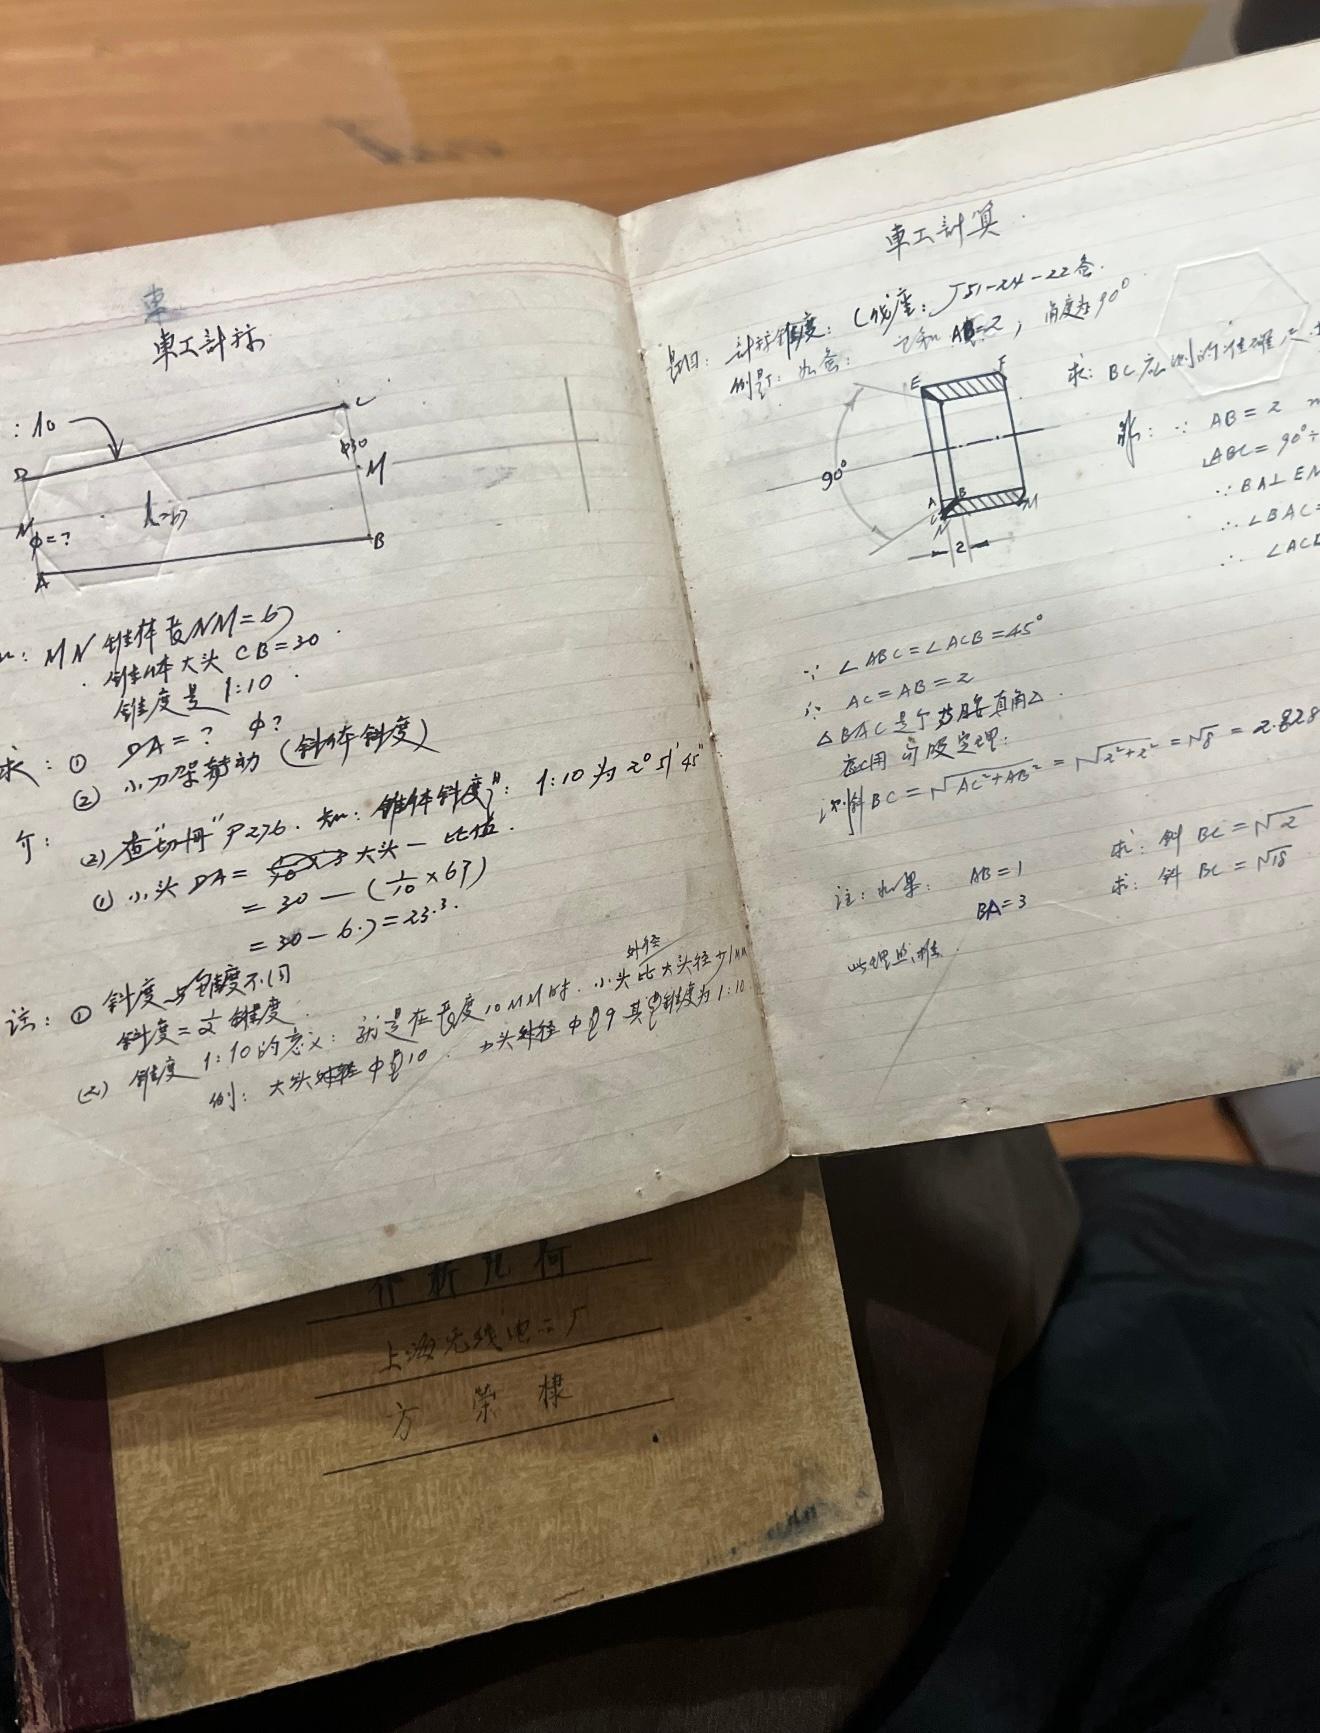 車
車工計标
:10
D
C
φ30
M
N
φ=?
A
B
: MN 锥体长NM=67
锥体大头 CB=30.
锥度是 1:10.
求: ① DA=? φ?
② 小刀架转动 (斜体斜度)
(2) 查"切册" P276. 知: "锥体斜度": 1:10 为 2°51′45″
(1) 小头 DA= 大头—比值.
= 30 — (1/10 × 67)
= 30 — 6.7 = 23.3.
註: ① 斜度与锥度不同
斜度=1/2 锥度.
(2) 锥度 1:10的意义: 就是在长度10MM时. 小头外径比大头径少1MM
例: 大头外径中是10. 小头外径中是9 其锥度为1:10.
車工計算.
題目: 計标锥度: J51-24-22
例題: 如 AB=2, 角度为90°
求: BC 应 的准確尺
E
F
90°
A
B
C
N
M
2
解: ∵ AB=2
∠ABC=90°÷
∵ BA⊥EN
∴ ∠BAC=
∴ ∠ACB
∵ ∠ABC=∠ACB=45°
∴ AC=AB=2
△BAC是个 腰直角△.
应用勾股定理:
则斜BC=√AC²+AB²=√2²+2²=√8=2.828
註: 如果: AB=1 求: 斜 BC=√2
BA=3 求: 斜 BC=√18
此理照推.
析几何
上海无线电二厂
方荣棣